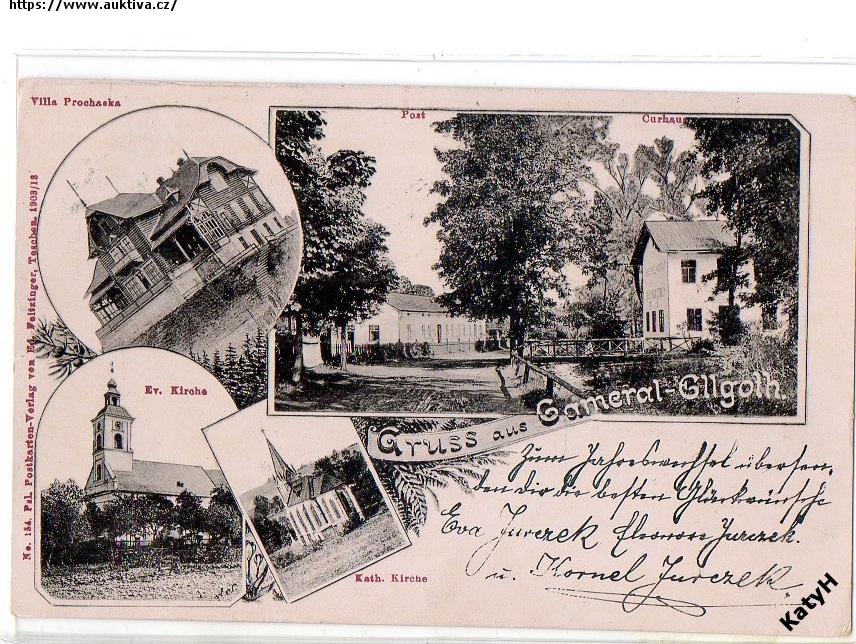 https://www.auktiva.cz/
Villa Prochaska
Post
Curhaus
No. 184. Pal. Postkarten-Verlag von Ed. Feitzinger, Teschen. 1903/13
Ev. Kirche
Gruss aus Cameral-Ellgoth.
Kath. Kirche
Zum Jahreswechsel übersen,
den dir die besten Glückwünsche
Eva Jurczek Eleonore Jurczek.
u. Kornel Jurczek
KatyH